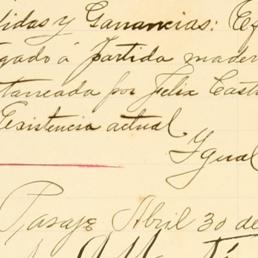 didas y Ganancias:
gado á partida mader
taneada por Felix Cast
Existencia actual
Ygual
Pasaje Abril 30 de